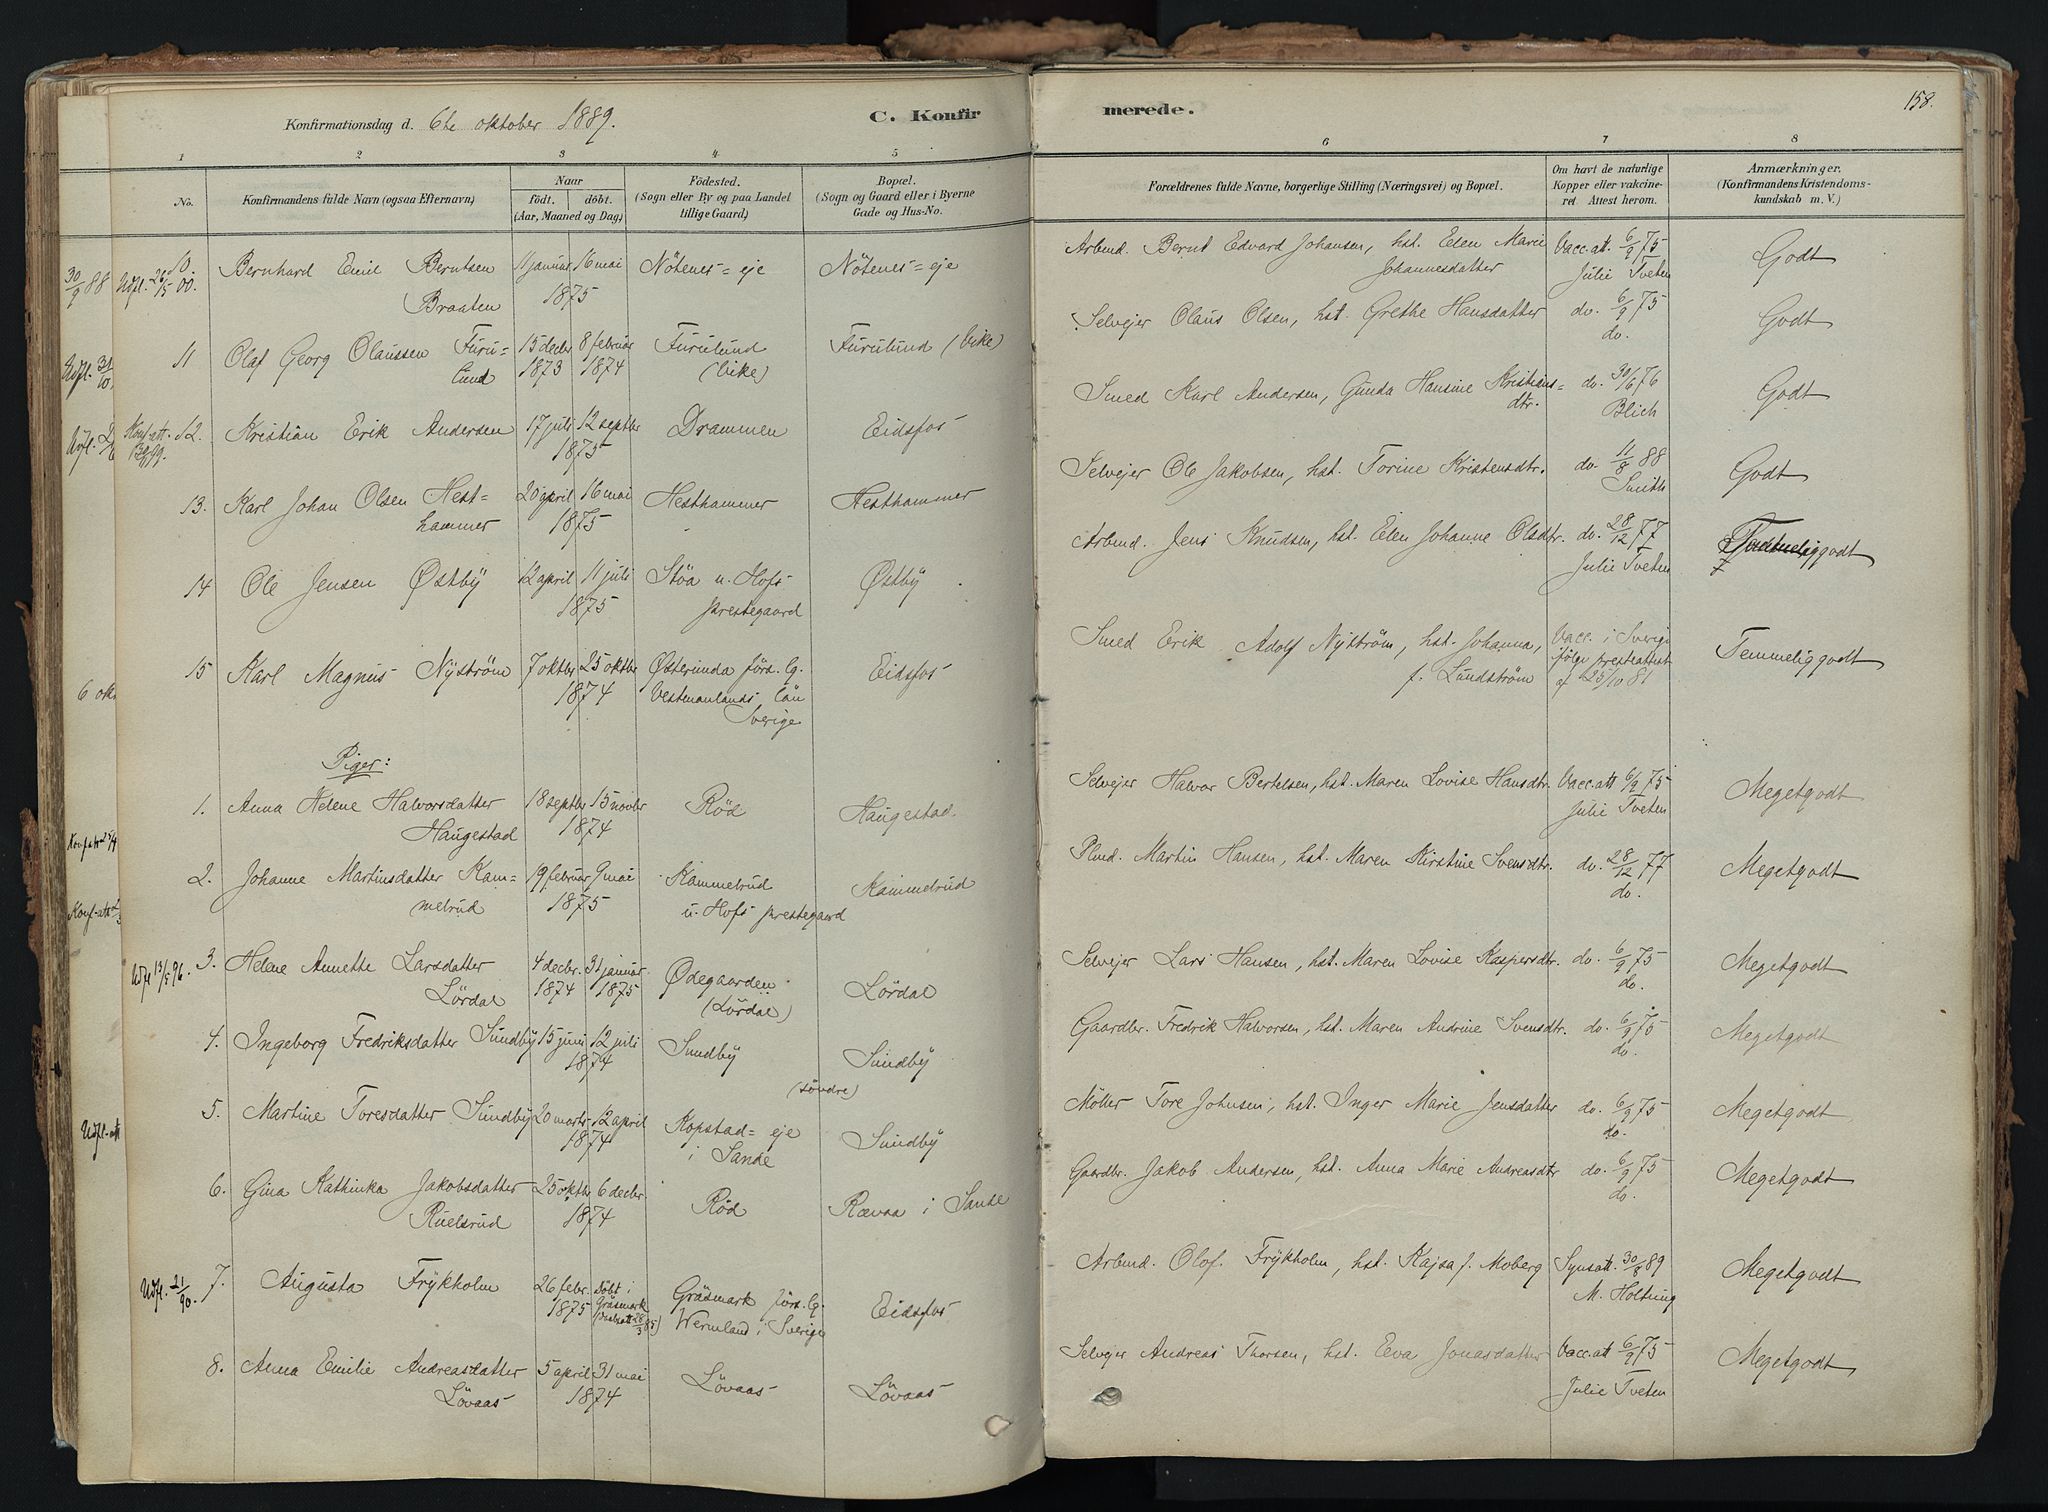 Konfirmationsdag d. 6te oktober 1889.
C. Konfirmerede.
158.
1 2 3 4 5 6 7 8
No.
Konfirmandens fulde Navn (ogsaa Efternavn)
Naar
født. døbt.
(Aar, Maaned og Dag)
Födested.
(Sogn eller By og paa Landet
tillige Gaard)
Bopæl.
(Sogn og Gaard eller i Byerne
Gade og Hus-No.
Forældrenes fulde Navne, borgerlige Stilling (Næringsvei) og Bopæl.
Om havt de naturlige
Kopper eller vakcine-
ret. Attest herom.
Anmærkninger.
(Konfirmandens Kristendoms-
kundskab m. V.)
30/9 88
Udfl. 26/5 00. 10 Bernhard Emil Berntsen 11 januar 16 mai Nötenes=eje Nötenes=eje Arbmd. Bernt Edvard Johansen, hst. Elen Marie Vacc.att. 6/9 75 Godt
Braaten 1875 Johannesdatter Julie Tveten
Udfl. 31/10
11 Olaf Georg Olaussen Furu= 15 decbr 8 februar Furulund Furulund (Vike) Selvejer Olaus Olsen, hst. Grethe Hansdatter do. 6/9 75 Godt
lund 1873 1874 (Vike) do.
Udfl.
Konf.att.
12. Kristian Erik Andersen 17 juli 12 septbr Drammen Eidsfos Smed Karl Andersen, Gunda Hansine Kristians= do. 30/6 76 Godt
1875 dtr. Blich
13. Karl Johan Olsen Hest= 20 april 16 mai Hesthammer Hesthammer Selvejer Ole Jakobsen, hst. Torine Kristensdtr. do. 11/8 88 Godt
hammer 1875 Smith
14 Ole Jensen Østby 12 april 11 juli Støa u. Hofs Østby Arbmd. Jens Knudsen, hst. Elen Johanne Olsdtr. do. 28/12 77 Temmeliggodt
1875 prestegaard Julie Tveten
15 Karl Magnus Nyström 7 oktbr 25 oktbr Østerunda förs. lg. Eidsfos Smed Erik Adolf Nyström, hst. Johanna, Vacc. i Sverige Temmeliggodt
1874 Vestmanlands län f. Lundström ifølge presteattest
Sverige af 25/10 81
6 okt
Piger:
1. Anna Helene Halvorsdatter 18 septbr 15 novbr Röd Haugestad. Selvejer Halvor Bertelsen, hst. Maren Lovise Hansdtr. Vacc.att 6/9 75 Megetgodt
Haugestad 1874 Julie Tveten
2. Johanne Martinsdatter Kam= 19 februar 9 mai Kammelrud Kammelrud Plmd. Martin Hansen, hst. Maren Kirstine Svensdtr. do. 28/12 77 Megetgodt
melrud 1875 u. Hofs prestegaard do.
Konf-att
Udfl 13/5 96. 3. Helene Annette Larsdatter 4 decbr. 31 januar Ødegaarden Lördal Selvejer Lars Hansen, hst. Maren Lovise Kaspersdtr. do. 6/9 75 Megetgodt
Lördal 1874 1875 (Lördal) do.
4. Ingeborg Fredriksdatter Sundby 15 juni 12 juli Sundby Sundby Gaardbr. Fredrik Halvorsen, hst. Maren Andrine Svensdtr. do. 6/9 75 Megetgodt
1874 (söndre) do.
Udfl-att
5. Martine Toresdatter Sundby 20 marts 12 april Kopstad=eje Sundby Möller Tore Johnsen, hst. Inger Marie Jensdatter do. 6/9 75 Megetgodt
1874 i Sande do.
6. Gina Kathinka Jakobsdatter 25 oktbr 6 decbr. Röd Rævaa i Sande Gaardbr. Jakob Andersen, hst. Anna Marie Andreasdtr do. 6/9 75 Megetgodt
Ruelsrud 1874 do.
Udfl. 21/ 90. 7. Augusta Frykholm 26 febr. Döbt i Gräsmark förs. lg. Eidsfos Arbmd. Olof Frykholm, hst. Kajsa f. Moberg Synsatt 30/8 89 Megetgodt
1875 Gräsmark Wermland i Sverige M. Holtung
8. Anna Emilie Andreasdatter 5 april 31 mai Lövaas Lövaas Selvejer Andreas Thorsen, hst. Eva Jonasdatter Vacc.att 6/9 75 Megetgodt
Lövaas 1874 Julie Tveten